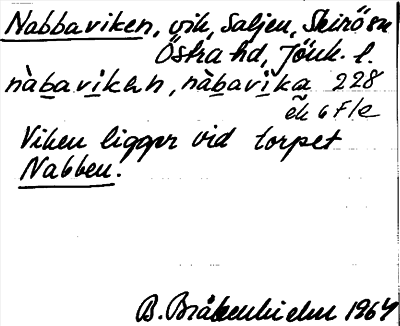 Nabbaviken, vik, Saljen, Skirö sn
Östra hd, Jönk. l.
nàbavikən, nàbavika 228
ek 6 F/e
Viken ligger vid torpet
Nabben.
B. Bråkenhielm 1964